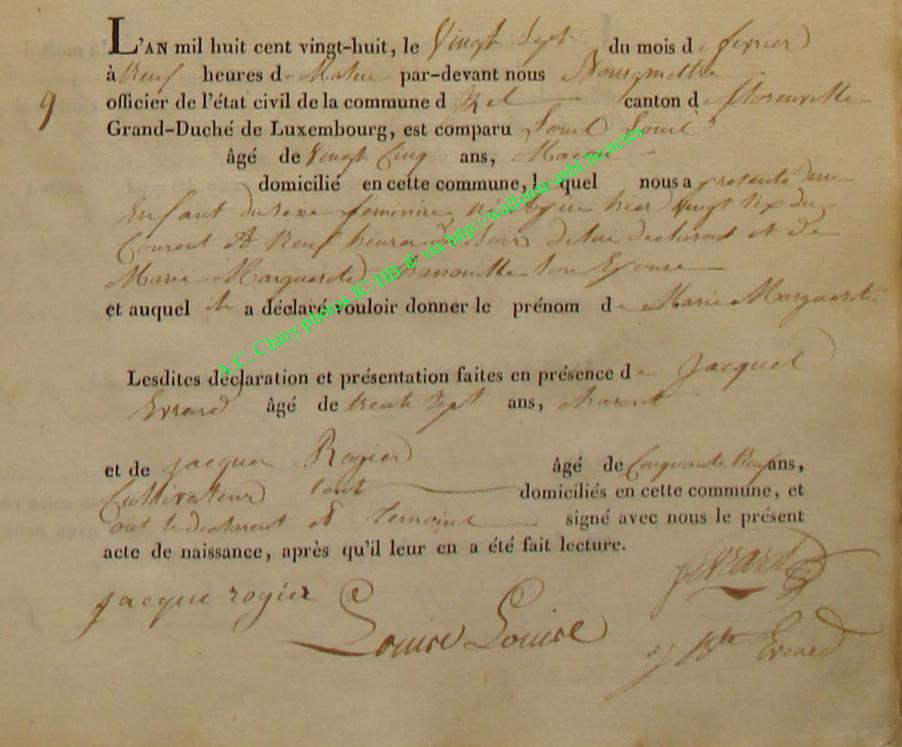 L'AN mil huit cent vingt-huit, le Vingt Sept du mois de fevrier
à Neuf heures de Matin par-devant nous
9 officier de l'état civil de la commune d canton de florenville
Grand-Duché de Luxembourg, est comparu Louis Louis
âgé de Vingt Cinq ans, Maçon
domicilié en cette commune, lequel nous a presenté une
Enfant du sexe feminine, hier Vingt six du
Courant A Neuf heures du Soir de lui declarant et de
Marie Marguerite son Epouse
et auquel il a déclaré vouloir donner le prénom de Marie Marguerite
A.C. Chiny photos JC/HB ® via http://wallonia-asbl.be/actes
Lesdites déclaration et présentation faites en présence de Jacques
Evrard âgé de trente Sept ans,
et de jacque Rogier âgé de Cinquante Neuf ans,
Cultivateur tous domiciliés en cette commune, et
ont le declarant et temoins signé avec nous le présent
acte de naissance, après qu'il leur en a été fait lecture.
jacque rogier
jEvrard
Louise Louise
j Bte Evrard